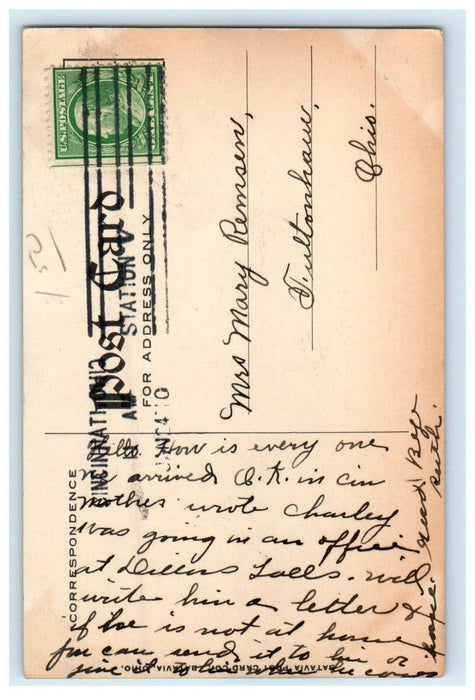 U.S. POSTAGE
Post Card
FOR ADDRESS ONLY
CINCINNATI, OHIO
STATION V
Mrs Mary Remsen,
Fultonham,
Ohio.
CORRESPONDENCE
Hello. How is every one
We arrived O.K. in Cin
Mother wrote Charley
was going in an office
at Dillons Falls. will
write him a letter &
if he is not at home
you can send it to him or
give it to him when he comes
home. Good Bye
Ruth.
BATAVIA POST CARD CO., BATAVIA, OHIO.